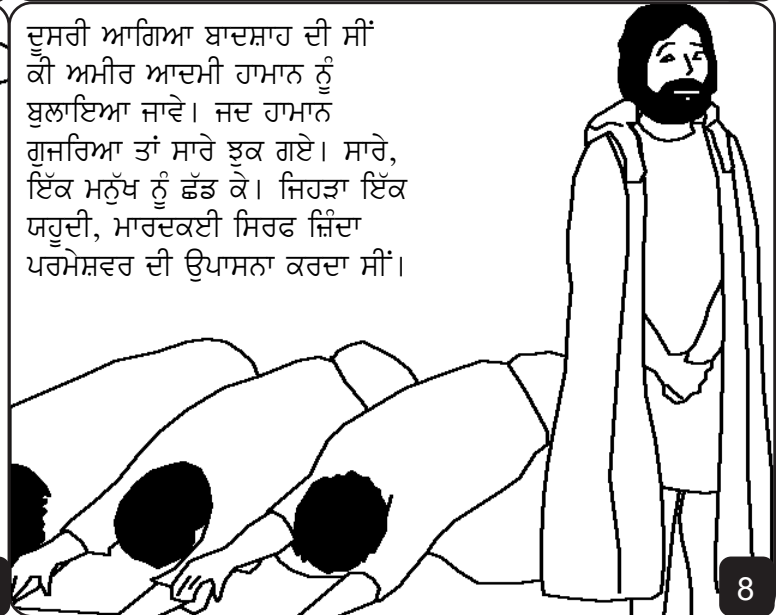 ਦੂਸਰੀ ਆਗਿਆ ਬਾਦਸ਼ਾਹ ਦੀ ਸੀਂ
ਕੀ ਅਮੀਰ ਆਦਮੀ ਹਾਮਾਨ ਨੂੰ
ਬੁਲਾਇਆ ਜਾਵੇ। ਜਦ ਹਾਮਾਨ
ਗੁਜਰਿਆ ਤਾਂ ਸਾਰੇ ਝੁਕ ਗਏ। ਸਾਰੇ,
ਇੱਕ ਮਨੁੱਖ ਨੂੰ ਛੱਡ ਕੇ। ਜਿਹੜਾ ਇੱਕ
ਯਹੂਦੀ, ਮਾਰਦਕਈ ਸਿਰਫ ਜ਼ਿੰਦਾ
ਪਰਮੇਸ਼ਵਰ ਦੀ ਉਪਾਸਨਾ ਕਰਦਾ ਸੀਂ।
8